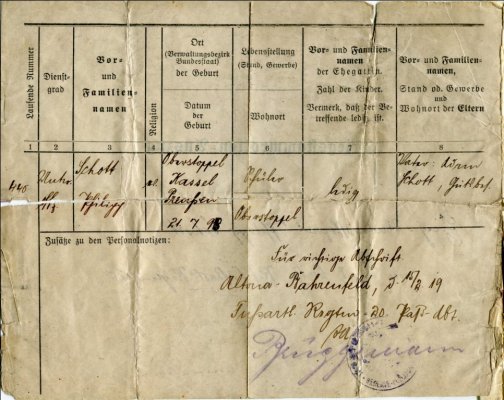 Laufende Nummer
Dienst-
grad
Vor-
und
Familien-
namen
Religion
Ort
(Verwaltungsbezirk
Bundesstaat)
der Geburt
Datum
der
Geburt
Lebensstellung
(Stand, Gewerbe)
Wohnort
Vor- und Familien-
namen
der Ehegattin.
Zahl der Kinder.
Vermerk, daß der Be-
treffende ledig ist.
Vor- und Familien-
namen,
Stand od. Gewerbe
und
Wohnort der Eltern
1 2 3 4 5 6 7 8
Unter
Schott
Philipp
Oberstoppel
Kassel
Preußen
21. 7. 98
Schüler
Oberstoppel
ledig
Vater:
Schott,
Zusätze zu den Personalnotizen:
Für richtige Abschrift.
Altona-Bahrenfeld, d. 15/2 19
Fußartl. Regten. 20.
Brüggemann